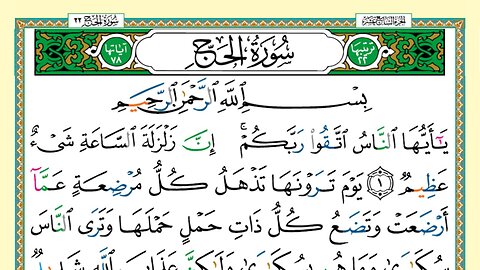 سُورَةُ الحَجِّ ٢٢ الجزء السابع عشر
ترتيبها ٢٢ سُورَةُ الحَجِّ آياتها ٧٨
بِسْمِ ٱللَّهِ ٱلرَّحْمَٰنِ ٱلرَّحِيمِ
يَٰٓأَيُّهَا ٱلنَّاسُ ٱتَّقُوا۟ رَبَّكُمْ ۚ إِنَّ زَلْزَلَةَ ٱلسَّاعَةِ شَىْءٌ
عَظِيمٌ ١ يَوْمَ تَرَوْنَهَا تَذْهَلُ كُلُّ مُرْضِعَةٍ عَمَّآ
أَرْضَعَتْ وَتَضَعُ كُلُّ ذَاتِ حَمْلٍ حَمْلَهَا وَتَرَى ٱلنَّاسَ
سُكَٰرَىٰ وَمَا هُم بِسُكَٰرَىٰ وَلَٰكِنَّ عَذَابَ ٱللَّهِ شَدِيدٌ